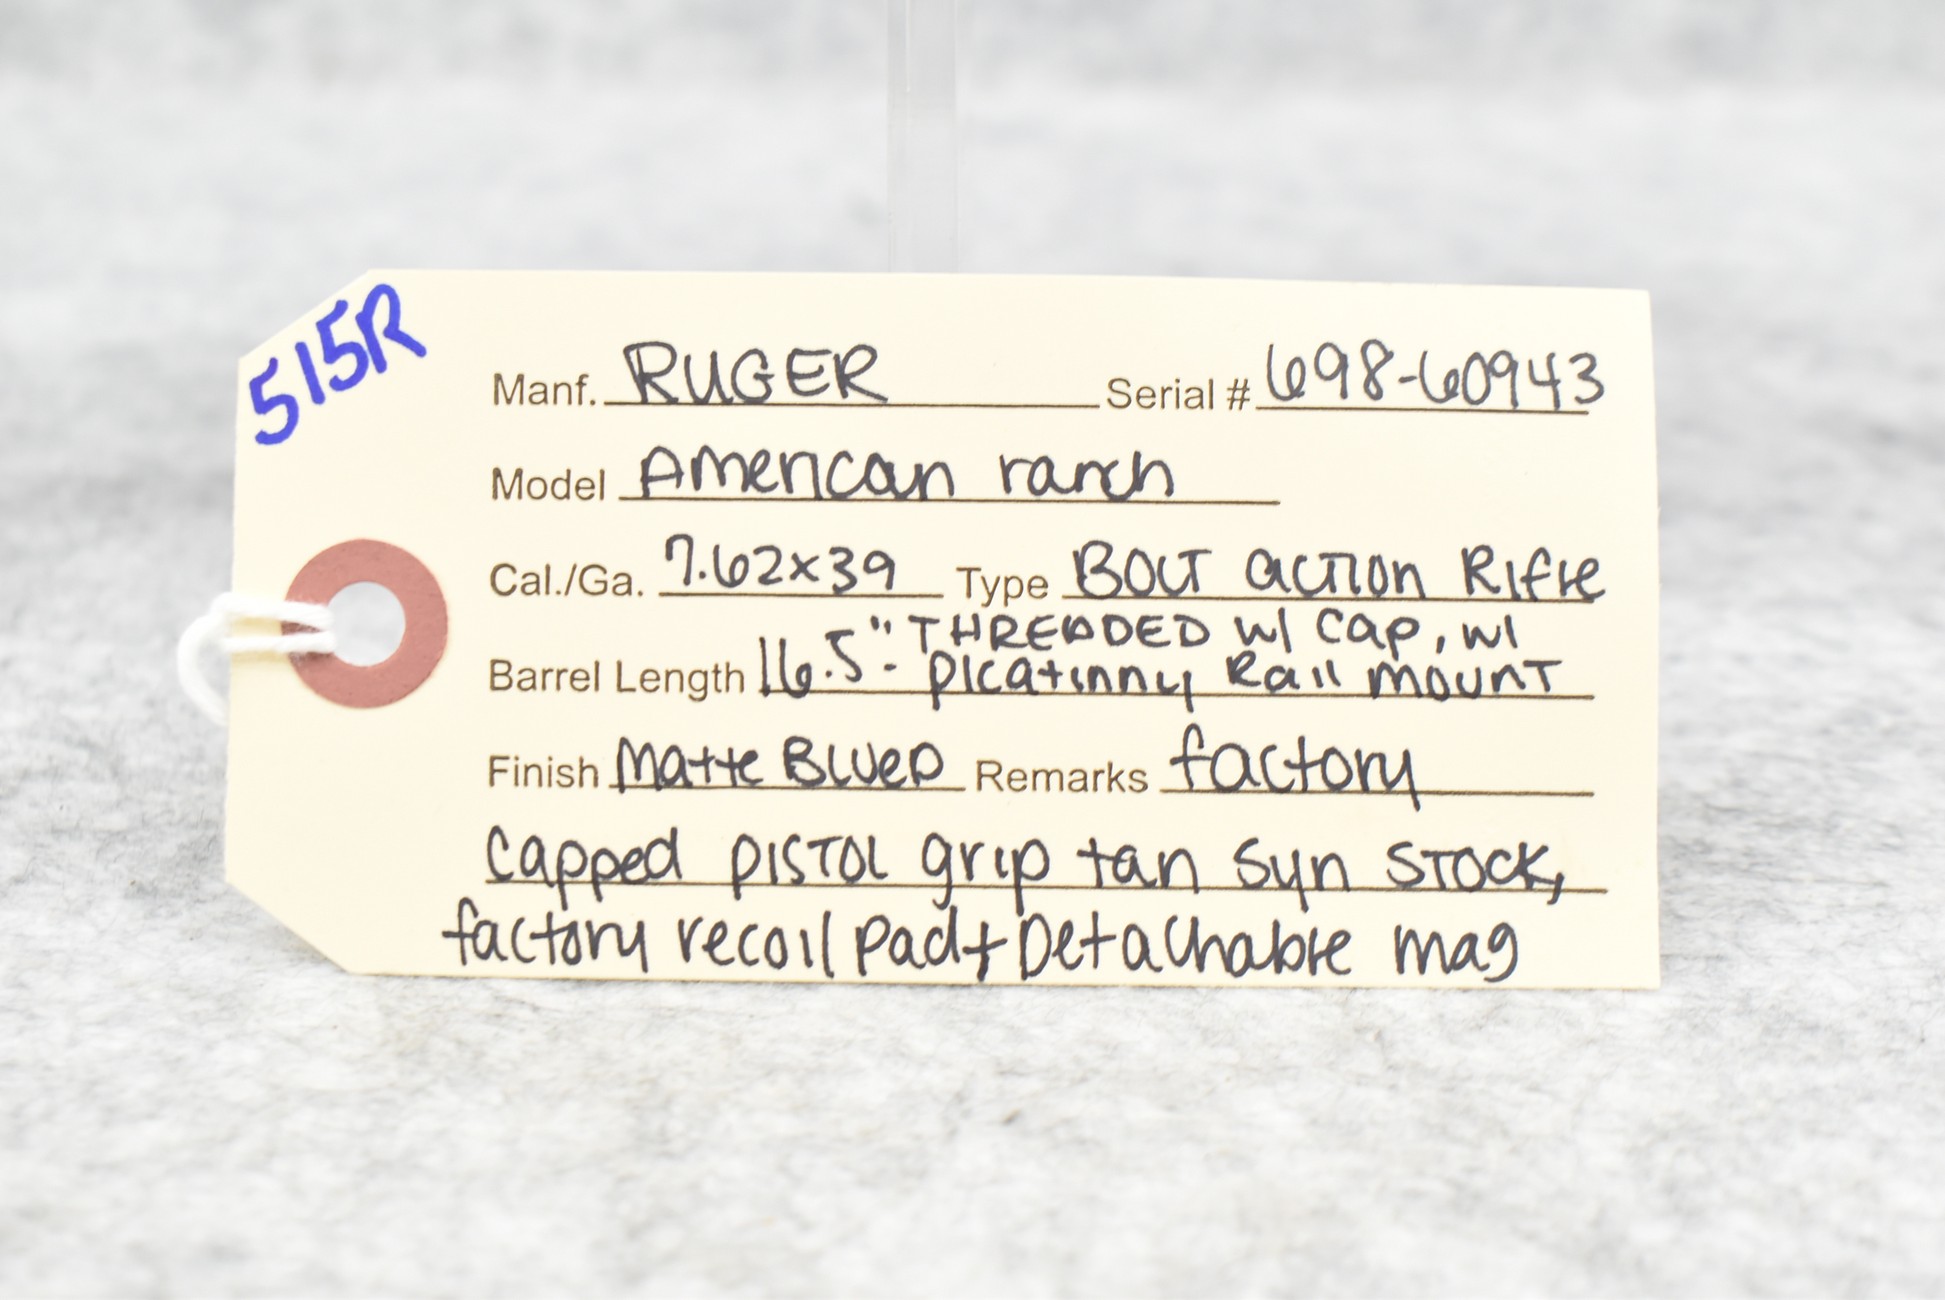 515R
Manf. RUGER Serial # 698-60943
Model American ranch
Cal./Ga. 7.62x39 Type BOLT action Rifle
THREADED w/ cap, w/
Barrel Length 16.5" - picatinny Rail mount
Finish Matte Blued Remarks factory
capped pistol grip tan syn stock,
factory recoil pad + Detachable mag